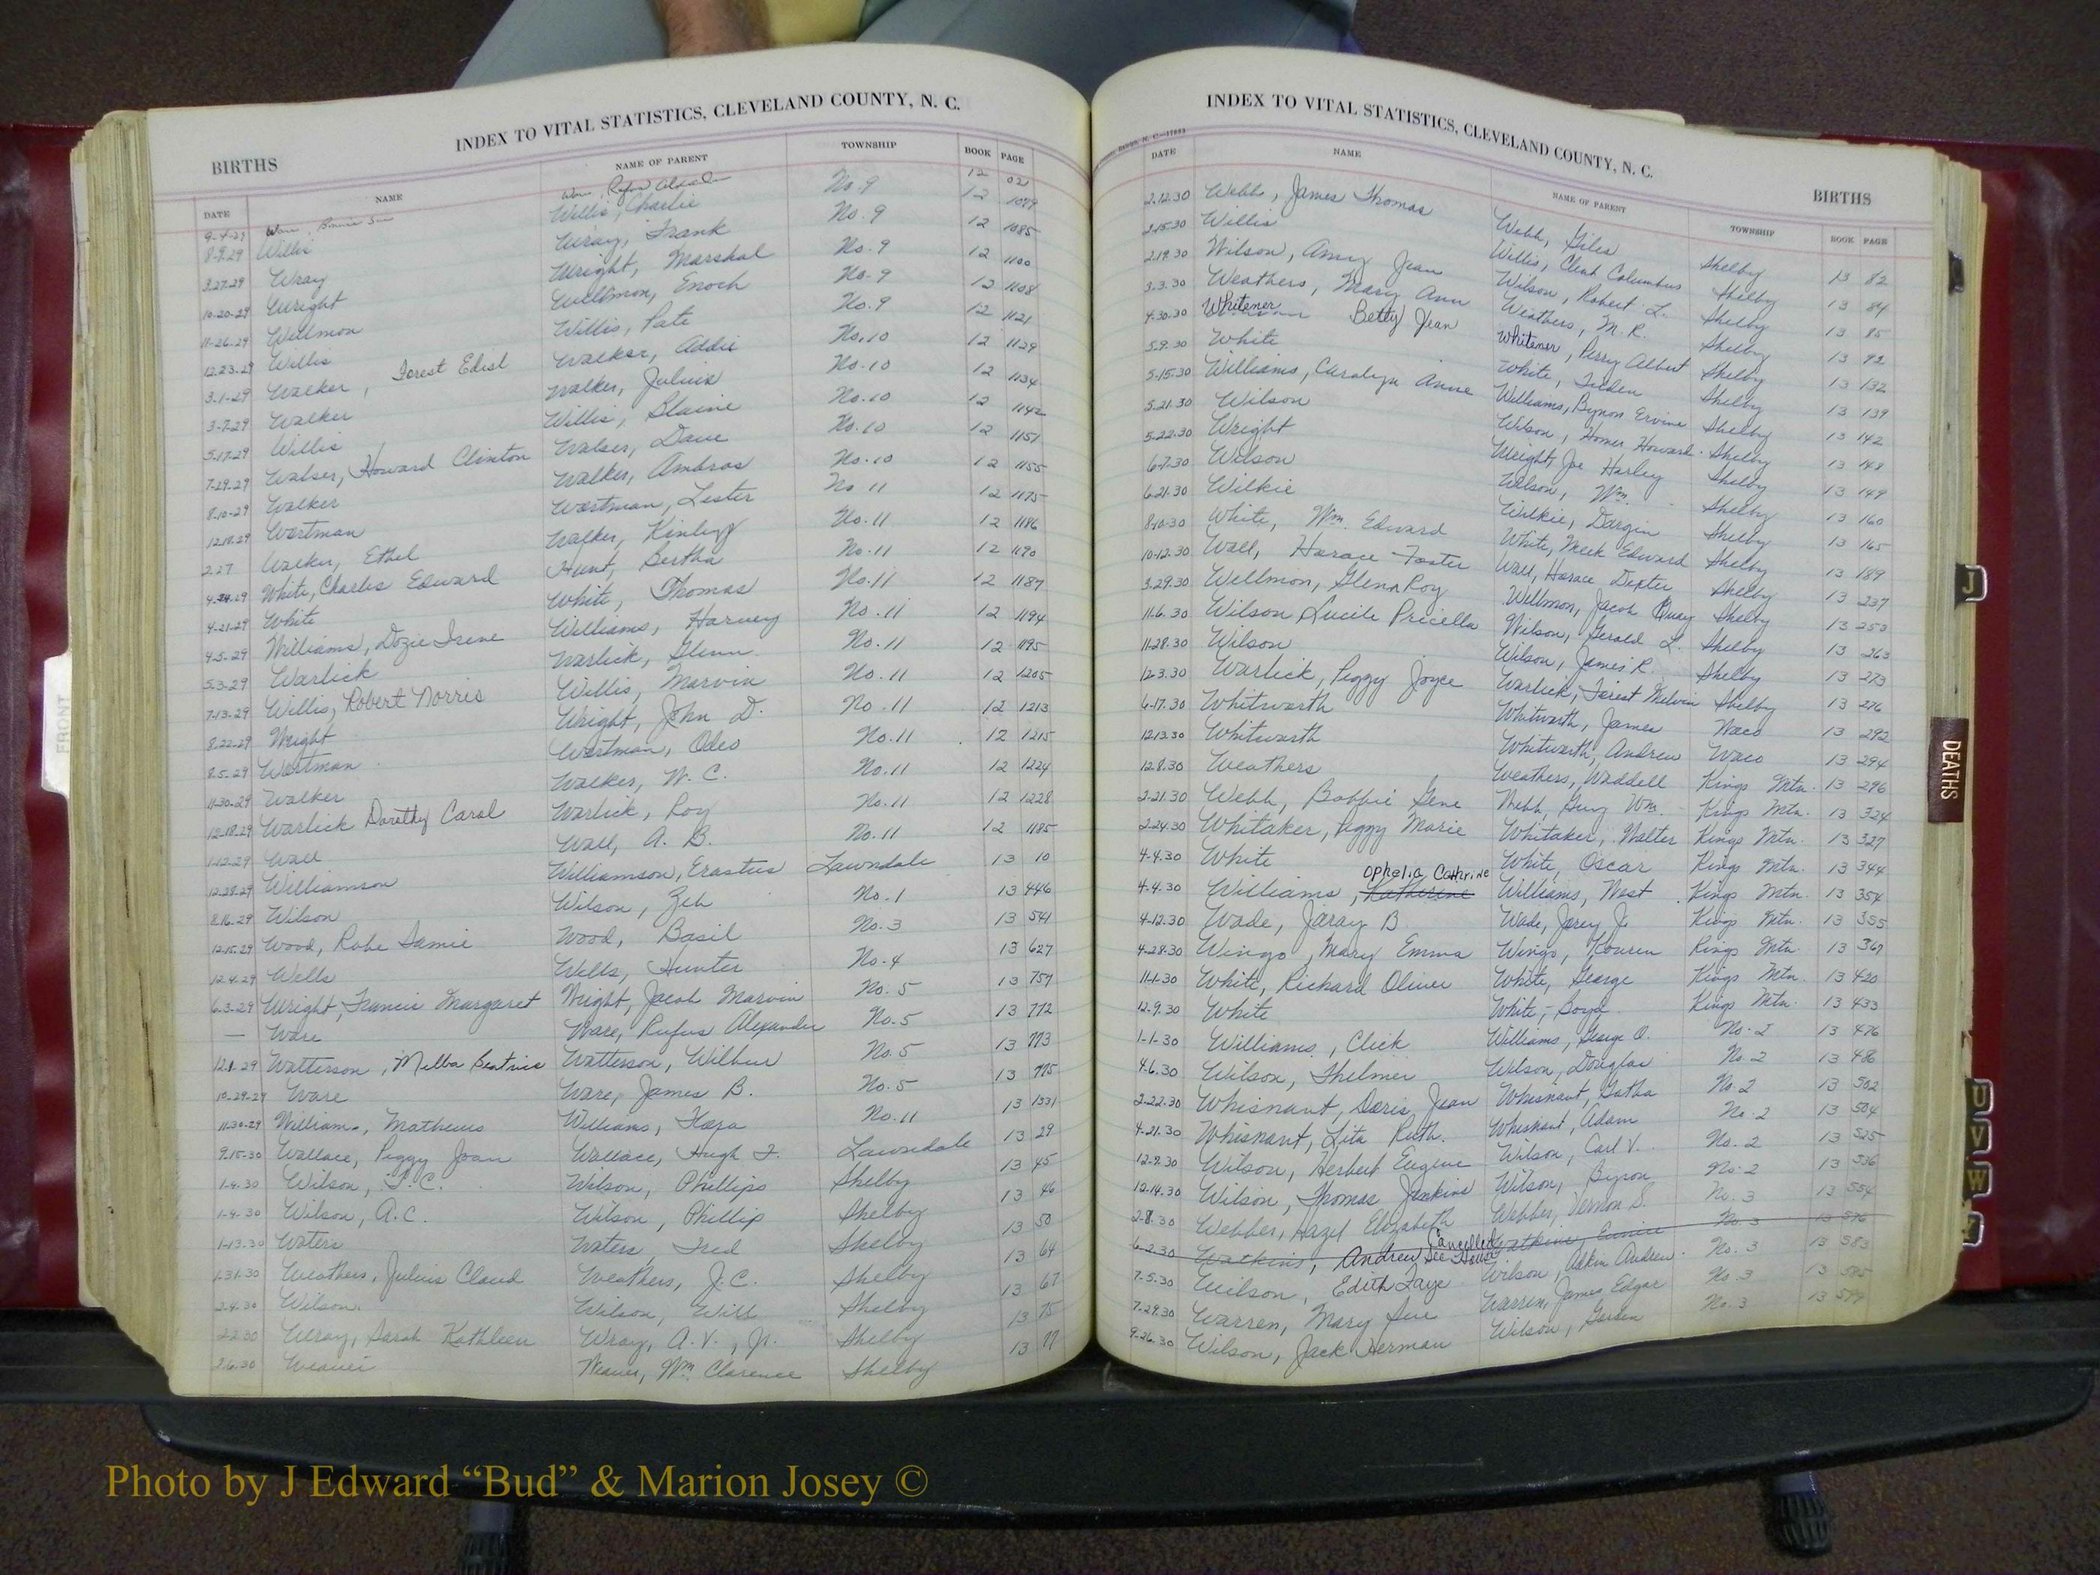 INDEX TO VITAL STATISTICS, CLEVELAND COUNTY, N. C.
BIRTHS
DATE NAME NAME OF PARENT TOWNSHIP BOOK PAGE
9-4-29 Ware, Bonnie Sue Ware, Rufus 12
8-9-29 Willis Willis, Charlie No. 9 12 1079
3-27-29 Wray Wray, Frank No. 9 12 1085
10-20-29 Wright Wright, Marshal No. 9 12 1100
11-26-29 Wellmon Wellmon, Enoch No. 9 12 1108
12-23-29 Willis Willis, Pate No. 9 12 1121
3-1-29 Walker, Forest Edisl Walker, Addie No. 10 12 1129
3-7-29 Walker Walker, Julius No. 10 12 1134
5-17-29 Willis Willis, Blaine No. 10 12 1142
7-29-29 Walser, Howard Clinton Walser, Dave No. 10 12 1151
8-10-29 Walker Walker, Ambros No. 10 12 1155
12-18-29 Wortman Wortman, Lester No 11 12 1175
2-27 Walker, Ethel Walker, No. 11 12 1186
4-24-29 White, Charles Edward Hunt, Bertha No. 11 12 1190
4-21-29 White White, Thomas No. 11 12 1187
4-5-29 Williams, Dozie Irene Williams, Harvey No. 11 12 1194
5-3-29 Warlick Warlick, Glenn No. 11 12 1195
7-13-29 Willis, Robert Norris Willis, Marvin No. 11 12 1205
8-22-29 Wright Wright, John D. No. 11 12 1213
8-5-29 Wortman Wortman, Odeo No. 11 12 1215
11-30-29 Walker Walker, W. C. No. 11 12 1224
12-18-29 Warlick Dorothy Carol Warlick, Roy No. 11 12 1228
1-12-29 Wall Wall, A. B. No. 11 12 1185
12-28-29 Williamson Williamson, Erastus Lawndale 13 10
8-16-29 Wilson Wilson, Zeb No. 1 13 446
12-15-29 Wood, Robe Samie Wood, Basil No. 3 13 541
12-4-29 Wells Wells, Hunter No. 4 13 627
6-3-29 Wright, Francis Margaret Wright, Jacob Marvin No. 5 13 757
— Ware Ware, Rufus Alexander No. 5 13 772
12-1-29 Watterson, Melba Beatrice Watterson, Wilbur No. 5 13 773
10-29-29 Ware Ware, James B. No. 5 13 775
11-30-29 Williams, Mathews Williams, No. 11 13 1331
9-15-30 Wallace, Peggy Joan Wallace, Hugh F. Lawndale 13 29
1-4-30 Wilson, T.C. Wilson, Phillips Shelby 13 45
1-4-30 Wilson, A.C. Wilson, Phillip Shelby 13 46
1-13-30 Waters Waters, Fred Shelby 13 50
1-31-30 Weathers, Julius Claud Weathers, J. C. Shelby 13 64
2-4-30 Wilson Wilson, Will Shelby 13 67
2-2-30 Wray, Sarah Kathleen Wray, A. V., Jr. Shelby 13 75
2-6-30 Weaver Weaver, Wm. Clarence Shelby 13 77
INDEX TO VITAL STATISTICS, CLEVELAND COUNTY, N. C.
BIRTHS
DATE NAME NAME OF PARENT TOWNSHIP BOOK PAGE
2-12-30 Webb, James Thomas Webb, Giles Shelby 13 82
2-15-30 Willis Willis, Clent Columbus Shelby 13 84
2-19-30 Wilson, Amy Jean Wilson, Robert L. Shelby 13 85
3-3-30 Weathers, Mary Ann Weathers, M. R. Shelby 13 92
4-30-30 Whitener Betty Jean Whitener, Perry Albert Shelby 13 132
5-9-30 White White, Tilden Shelby 13 139
5-15-30 Williams, Carolyn Anne Williams, Bynon Ervine Shelby 13 142
5-21-30 Wilson Wilson, Homer Howard Shelby 13 148
5-22-30 Wright Wright, Joe Harley Shelby 13 149
6-7-30 Wilson Wilson, Wm. Shelby 13 160
6-21-30 Wilkie Wilkie, Dargin Shelby 13 165
8-10-30 White, Wm. Edward White, Meek Edward Shelby 13 189
10-12-30 Wall, Horace Foster Wall, Horace Dexter Shelby 13 237
3-29-30 Wellmon, Glenn Roy Wellmon, Jacob Quay Shelby 13 253
11-6-30 Wilson Lucile Pricella Wilson, Gerald L. Shelby 13 263
11-28-30 Wilson Wilson, James R. Shelby 13 273
12-3-30 Warlick, Peggy Joyce Warlick, Forest Melvin Shelby 13 276
6-17-30 Whitworth Whitworth, James Waco 13 292
12-13-30 Whitworth Whitworth, Andrew Waco 13 294
12-8-30 Weathers Weathers, Waddell Kings Mtn. 13 296
2-21-30 Webb, Bobbie Gene Webb, Guy Wm. Kings Mtn. 13 324
2-24-30 Whitaker, Peggy Marie Whitaker, Walter Kings Mtn. 13 327
4-4-30 White White, Oscar Kings Mtn. 13 344
Ophelia Cathrine
4-4-30 Williams, Katherine Williams, West Kings Mtn. 13 354
4-12-30 Wade, Jaray B Wade, Jarey Jr. Kings Mtn. 13 355
4-28-30 Wingo, Mary Emma Wingo, Kings Mtn. 13 367
11-1-30 White, Richard Oliver White, George Kings Mtn. 13 420
12-9-30 White White, Boyd Kings Mtn. 13 433
1-1-30 Williams, Click Williams, George O. No. 2 13 476
4-6-30 Wilson, Thelmer Wilson, Douglas No. 2 13 486
2-22-30 Whisnant, Doris Jean Whisnant, Gatha No. 2 13 502
4-21-30 Whisnant, Lita Ruth. Whisnant, Adam No. 2 13 504
12-9-30 Wilson, Herbert Eugene Wilson, Carl V. No. 2 13 525
12-14-30 Wilson, Thomas Jenkins Wilson, Byron No. 2 13 536
2-8-30 Webber, Hazel Elizabeth Webber, Vernon S. No. 3 13 554
Cancelled
6-2-30 Watkins, Andrew See Watkins, Eunice No. 3 13 576
7-5-30 Wilson, Edith Faye Wilson, Adkin Andrew No. 3 13 583
7-29-30 Warren, Mary Sue Warren, James Edgar No. 3 13 585
9-26-30 Wilson, Jack Herman Wilson, Gorden No. 3 13 599
FRONT
J
DEATHS
U
V
W
Photo by J Edward “Bud” & Marion Josey ©